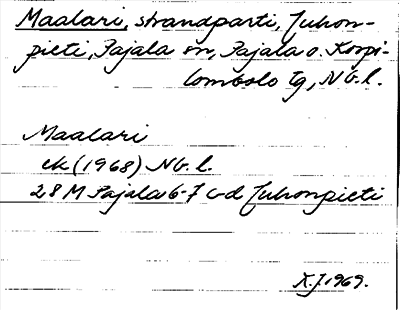 Maalari, strandparti, Juhon-
pieti, Pajala sn, Pajala o. Korpi-
lombolo tg, Nb. l.
Maalari
ek (1968) Nb. l.
28 M Pajala 6-7 c-d Juhonpieti
K.J. 1969.